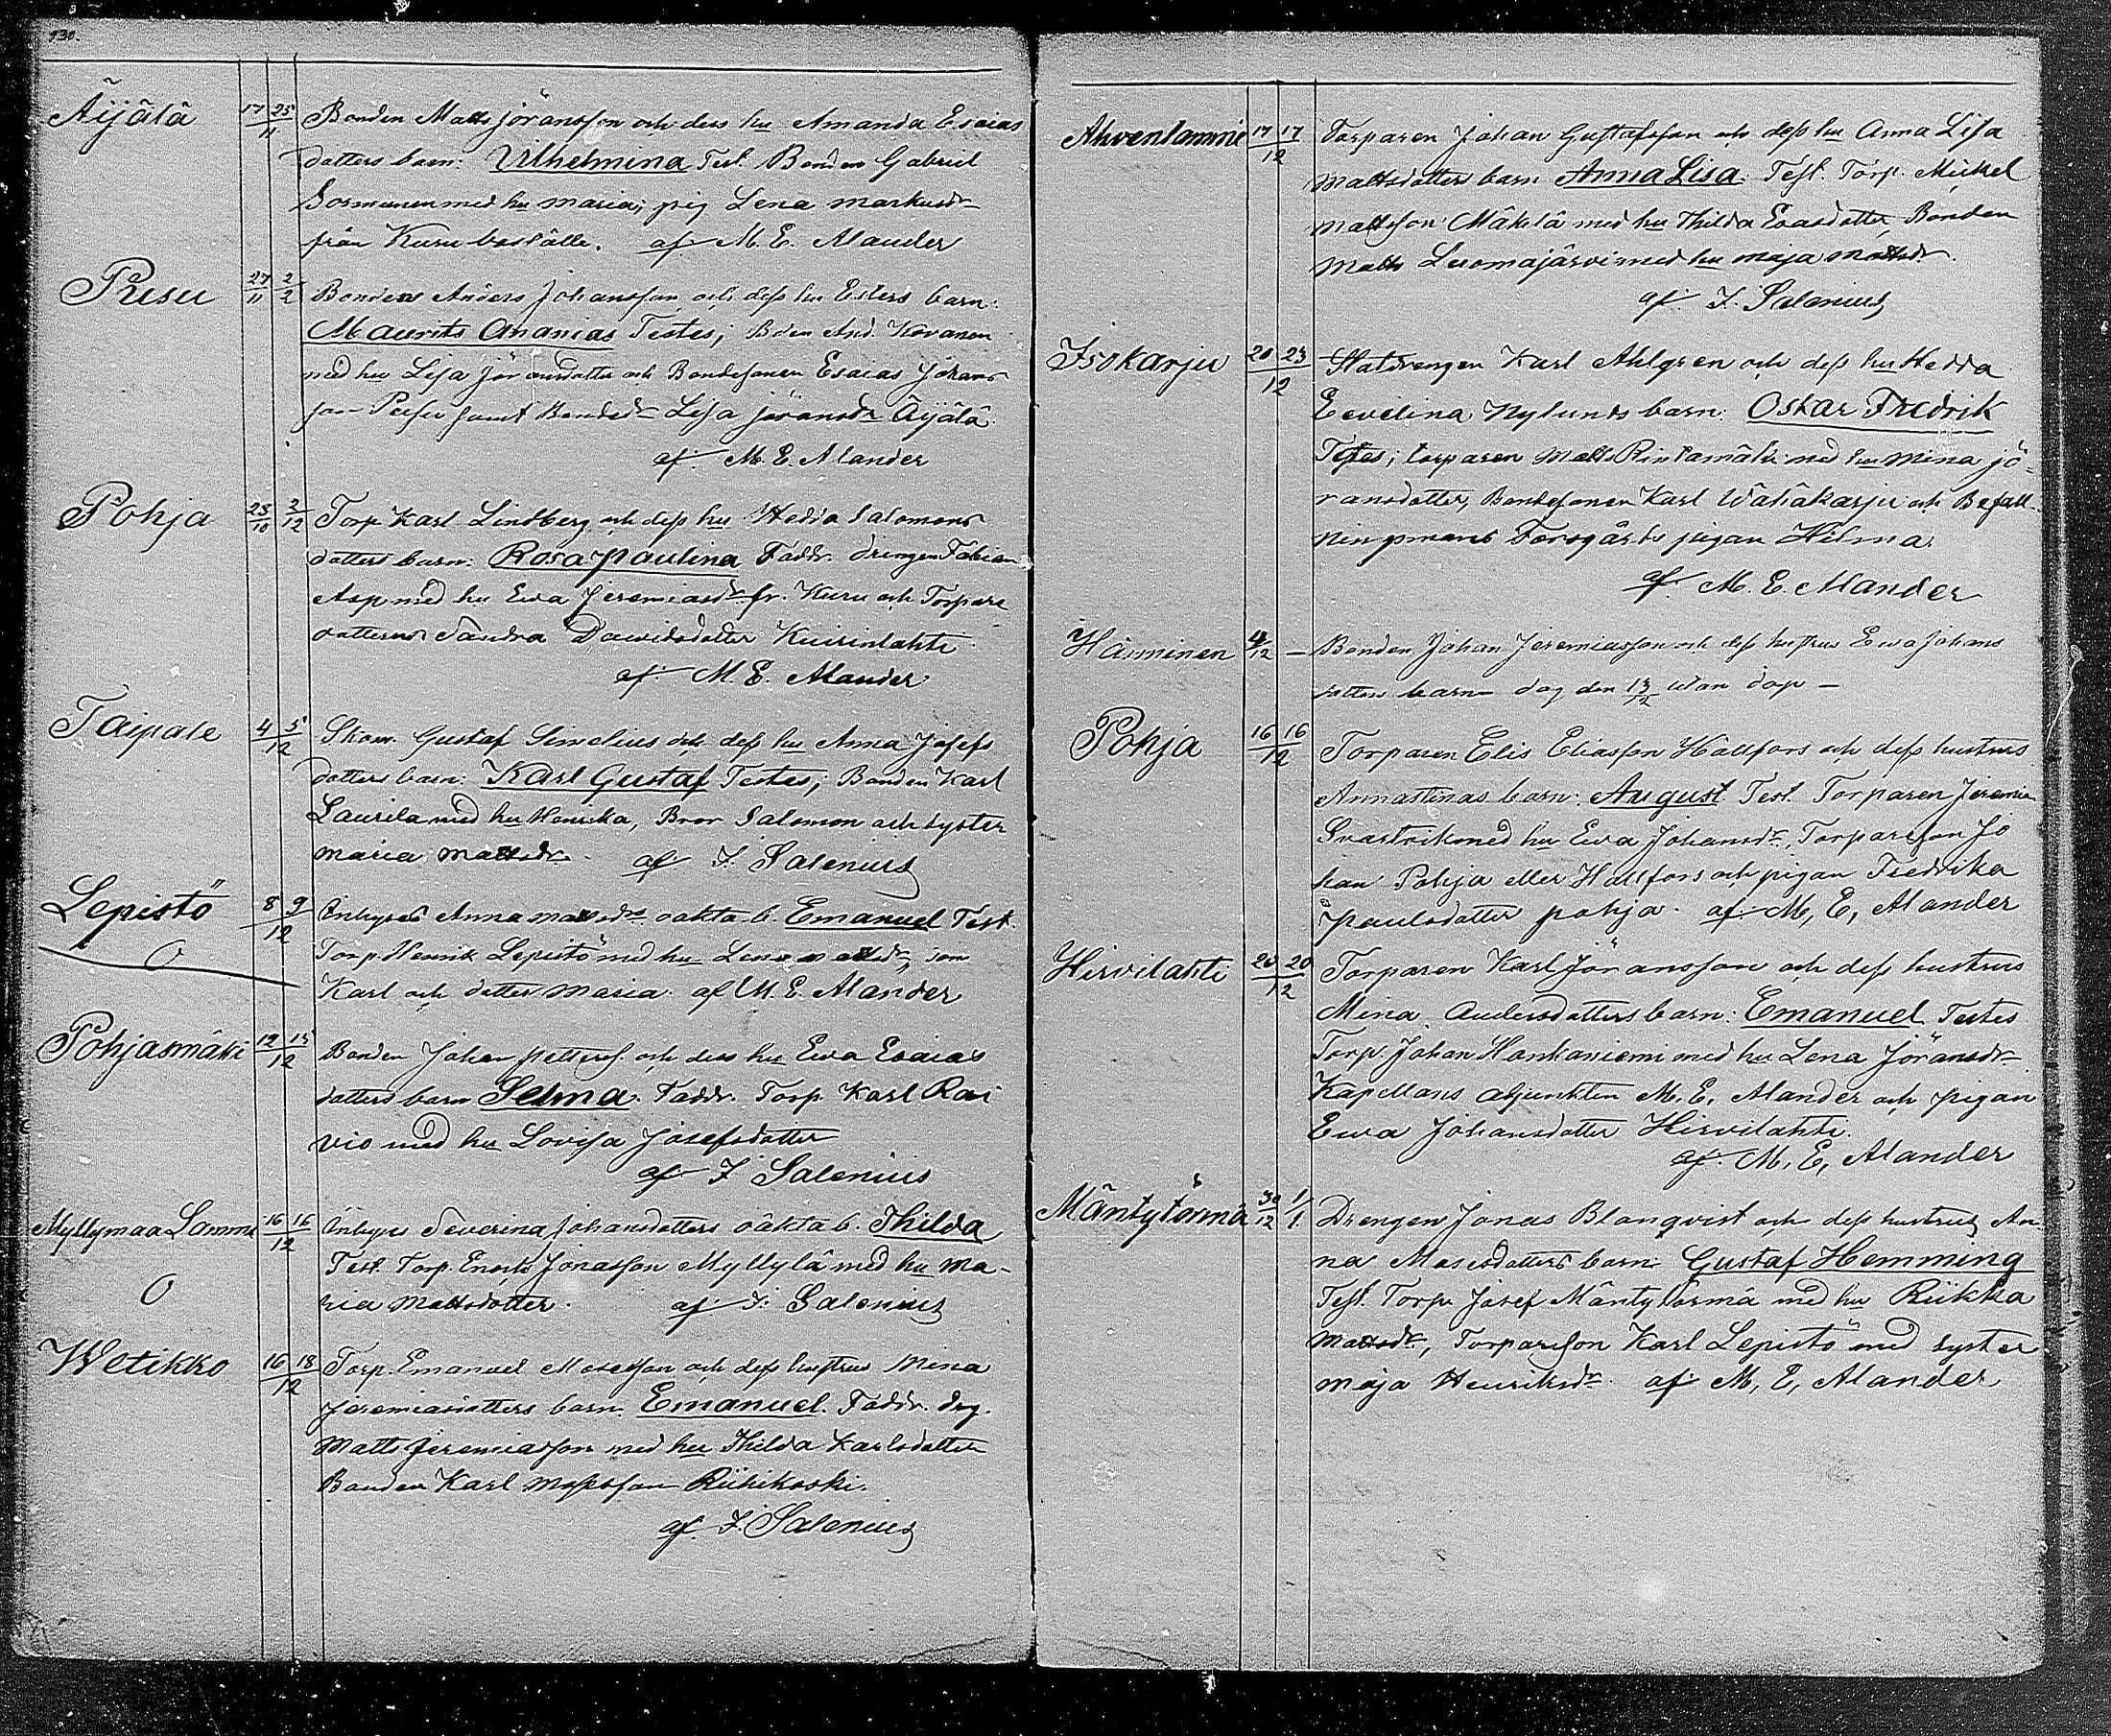 130.
Äijälä 17 25 / 11 Bonden Matts Jöransson och dess hu Amanda Esaias
dotters barn: Vilhelmina Test. Bonden Gabriel
Sormunen med hu Maria; pig Lena Markusdr
från Kuru boställe. af M. E. Alander
Pusu 27/11 2/2 Bonden Anders Johansson och dess hu Esters barn:
Maurits Ananias Testes; Bden And. Kovanen
med hu Lisa Jöransdotter och Bondesonen Esaias Johans
son Pusu samt Bondedr Lisa Jöransdr Äijälä.
af M. E. Alander
Pohja 23/10 2/12 Torp. Karl Lindberg och dess hu Hedda Salomons
dotters barn: Rosa Paulina Faddr. drengen Fabian
Asp med hu Eva Jeremiasdr fr. Kuru och Torpare
dottern Sandra Davidsdotter Kuirinlahti
af M. E. Alander
Taipale 4 5 / 12 Skom. Gustaf Simelius och dess hu Anna Josefs
dotters barn: Karl Gustaf Testes; Bonden Karl
Laurila med hu Henrika, Bror Salomon och syster
Maria Mattsdr. af F. Salenius
Lepistö 8 9 / 12 Enhyses Anna Mattsdrs oäkta b. Emanuel Test.
O Torp. Henrik Lepistö med hu Lena Mattsdr, son
Karl och dotter Maria. af M. E. Alander
Pohjasmäki 12 15 / 12 Bonden Johan Petters. och dess hu Eva Esaias
dotters barn Selma. Faddr. Torp Karl Rai
vio med hu Lovisa Josefsdotter
af F. Salenius
Myllymaa Lammi 16 16 / 12 Enhyses Severina Johansdotters oäkta b. Thilda
Test. Torp. Enok Jonasson Myllylä med hu Ma-
O ria Mattsdotter. af F. Salenius
Wetikko 16 18 / 12 Torp. Emanuel Mosesson och dess hustrus Mina
Jeremiasdotters barn. Emanuel. Faddr. drg.
Matts Jeremiasson med hu Thilda Karlsdotter
Bonden Karl Mosesson Riihikoski.
af F. Salenius
Ahvenlammi 17 17 / 12 Torparen Johan Gustafsson och dess hu Anna Lisa
Mattsdotters barn Anna Lisa. Test. Torp. Mickel
Mattsson Mäkelä med hu Thilda Evasdotter, Bonden
Matts Luomajärvi med hu Maja Mattsdr.
af F. Salenius
Isokarju 20 23 / 12 Statdrengen Karl Ahlgren och dess hu Hedda
Eevelina Nylunds barn: Oskar Fredrik
Testes; torparen Matts Rintamäki med hu Mina Jö-
ransdotter, Bondesonen Karl Wähäkarju och Befall-
ningsmans Forsgårds pigan Hilma.
af M. E. Alander
Harminen 4/12 — Bonden Johan Jeremiasson och dess hustrus Eva Johans
dotters barn dog den 13/12 utan dop —
Pohja 16 16 / 12 Torparen Elis Eliasson Hallfors och dess hustrus
Annastinas barn: August. Test. Torparen Jeremias
med hu Eva Johansdr, Torpareson Jo
han Pohja eller Hallfors och pigan Fredrika
Paulsdotter Pohja. af M, E, Alander
Hirvilahti 20 20 / 12 Torparen Karl Jöransson och dess hustrus
Mina Andersdotters barn: Emanuel Testes
Torp. Johan Hankaniemi med hu Lena Jöransdr
Kapellans adjunkten M. E. Alander och pigan
Ewa Johansdotter Hirvilahti.
af M, E, Alander
Mäntytörmä 30/12 1/1. Drengen Jonas Blomqvist och dess hustrus An
na Mosisdotters barn: Gustaf Hemming
Test. Torp. Josef Mäntytörmä med hu Riikka
Mattsdr, Torpareson Karl Lepistö med syster
Maja Henriksdr. af M, E, Alander